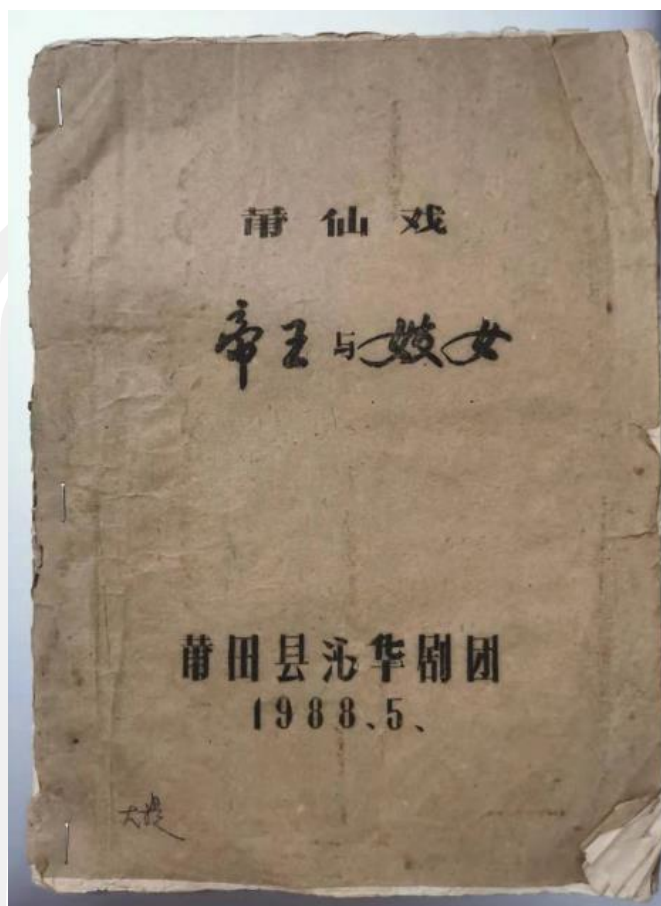 莆仙戏
帝王与妓女
莆田县沁华剧团
1988、5、